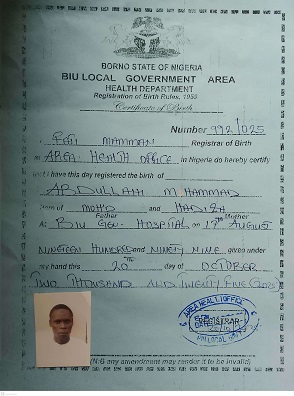 BORNO STATE OF NIGERIA
BIU LOCAL GOVERNMENT AREA
HEALTH DEPARTMENT
Registration of Birth Rules, 1950
Certificate of Birth
Number 992/025
MAMMAN Registrar of Birth
AREA HEALTH OFFICE in Nigeria do hereby certify
that I have this day registered the birth of
ABDULLAHI MUHAMMAD
Born of MOHD and HADIZA
Father Mother
At BIU GEN. HOSPITAL on AUGUST
NINETEEN HUNDRED and NINETY NINE given under
my hand this 20th day of OCTOBER
TWO THOUSAND AND TWENTY FIVE (2025)
AREA HEALTH OFFICE
REGISTRAR
(N.B any amendment may render it to be invalid)